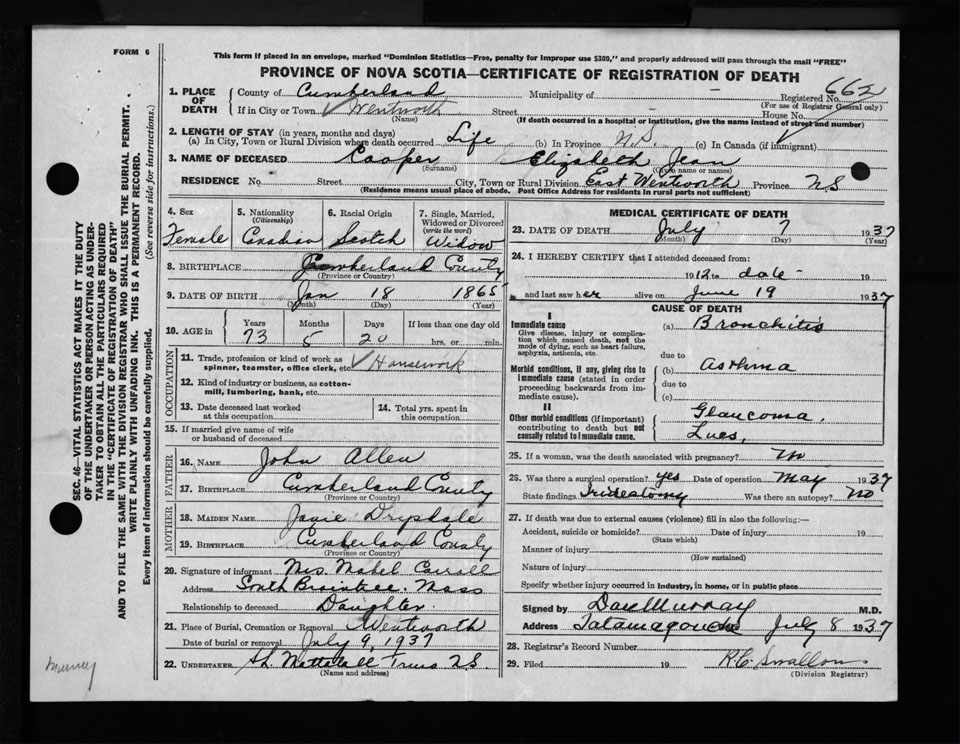 FORM 6
This form if placed in an envelope, marked "Dominion Statistics—Free, penalty for improper use $300," and properly addressed will pass through the mail "FREE"
PROVINCE OF NOVA SCOTIA—CERTIFICATE OF REGISTRATION OF DEATH
1. PLACE OF DEATH County of Cumberland Municipality of - Registered No. 662
(For use of Registrar General only)
If in City or Town Wentworth Street - House No.
(Name) (If death occurred in a hospital or institution, give the name instead of street and number)
2. LENGTH OF STAY (in years, months and days)
(a) In City, Town or Rural Division where death occurred Life (b) In Province N.S. (c) In Canada (if immigrant)
3. NAME OF DECEASED Cooper Elizabeth Jean
(Surname) (Given name or names)
RESIDENCE No. Street City, Town or Rural Division East Wentworth Province NS
(Residence means usual place of abode. Post Office Address for residents in rural parts not sufficient)
4. Sex Female
5. Nationality (Citizenship) Canadian
6. Racial Origin Scotch
7. Single, Married, Widowed or Divorced (write the word) Widow
8. BIRTHPLACE Cumberland County
(Province or Country)
9. DATE OF BIRTH Jan 18 1865
(Month) (Day) (Year)
10. AGE in Years 73 Months 5 Days 20 If less than one day old hrs. or min.
OCCUPATION
11. Trade, profession or kind of work as spinner, teamster, office clerk, etc. Housework
12. Kind of industry or business, as cotton-mill, lumbering, bank, etc.
13. Date deceased last worked at this occupation
14. Total yrs. spent in this occupation
15. If married give name of wife or husband of deceased
FATHER
16. NAME John Allen
17. BIRTHPLACE Cumberland County
(Province or Country)
MOTHER
18. MAIDEN NAME Janie Drysdale
19. BIRTHPLACE Cumberland County
(Province or Country)
20. Signature of informant Mrs. Mabel Carroll
Address South Braintree, Mass
Relationship to deceased Daughter.
21. Place of Burial, Cremation or Removal Wentworth
Date of burial or removal July 9, 1937
22. UNDERTAKER Truro N.S.
(Name and address)
MEDICAL CERTIFICATE OF DEATH
23. DATE OF DEATH July 7 1937
(Month) (Day) (Year)
24. I HEREBY CERTIFY that I attended deceased from:
1912 to date 19
and last saw her alive on June 19 1937
CAUSE OF DEATH
I
Immediate cause
Give disease, injury or complication which caused death, not the mode of dying, such as heart failure, asphyxia, asthenia, etc.
(a) Bronchitis
due to
Morbid conditions, if any, giving rise to immediate cause (stated in order proceeding backwards from immediate cause).
(b) Asthma
due to
(c)
II
Other morbid conditions (if important) contributing to death but not causally related to immediate cause.
Glaucoma,
Lues,
25. If a woman, was the death associated with pregnancy? No
26. Was there a surgical operation? yes Date of operation May 1937
State findings Iridectomy Was there an autopsy? No
27. If death was due to external causes (violence) fill in also the following:—
Accident, suicide or homicide? Date of injury 19
(State which)
Manner of injury
(How sustained)
Nature of injury
Specify whether injury occurred in industry, in home, or in public place
Signed by Dan Murray M.D.
Address Tatamagouche July 8 1937
28. Registrar's Record Number
29. Filed 19 R.C. Swallow
(Division Registrar)
SEC. 46—VITAL STATISTICS ACT MAKES IT THE DUTY
OF THE UNDERTAKER OR PERSON ACTING AS UNDER-
TAKER TO OBTAIN ALL THE PARTICULARS REQUIRED
IN THE "CERTIFICATE OF REGISTRATION OF DEATH"
AND TO FILE THE SAME WITH THE DIVISION REGISTRAR WHO SHALL ISSUE THE BURIAL PERMIT.
WRITE PLAINLY WITH UNFADING INK. THIS IS A PERMANENT RECORD.
Every item of information should be carefully supplied. (See reverse side for instructions.)
Murray